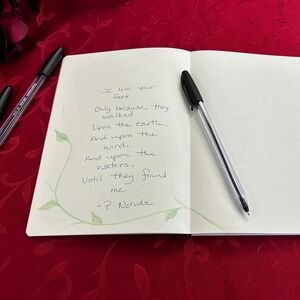 I love your
feet
Only because they
walked
Upon the earth,
And upon the
wind,
And upon the
waters,
Until they found
me
- P. Neruda